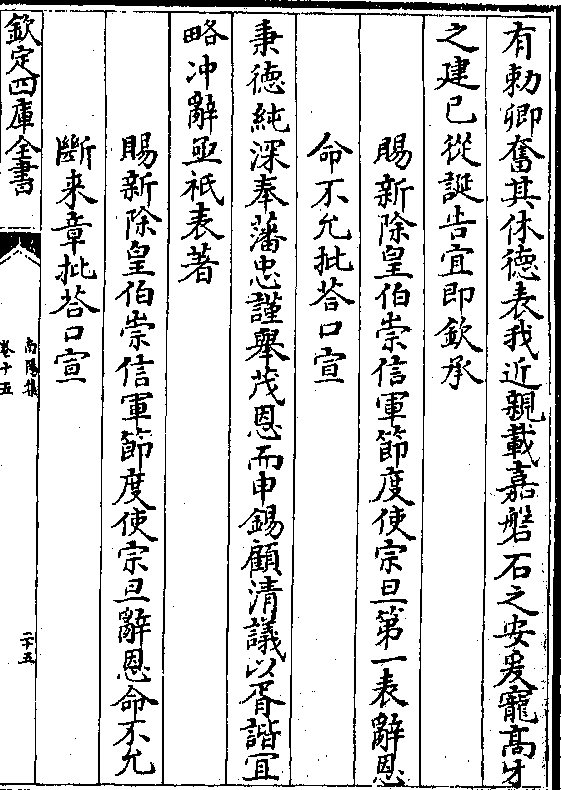 有勅卿奮其休徳表我近親載嘉磐石之安爰寵高牙
之建已從誕告宜即欽承
賜新除皇伯崇信軍節度使宗旦第一表辭恩
命不允批荅口宣
秉徳純深奉藩忠謹舉茂恩而申錫顧清議以胥諧宜
略冲辭亟祗表著
賜新除皇伯崇信軍節度使宗旦辭恩命不允
斷来章批荅口宣
欽定四庫全書
南陽集
卷十五
二十五